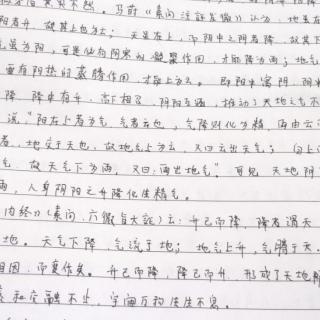 马莳《素问注证发微》认为，地虽在
阳者升，故其上也为云；天虽在上，而阴中之阴者降，故其下
虽为阴，可是他有阴寒的凝聚作用，才能降为雨；地气
要有阳热的蒸腾作用，才能上为云。即阳中寓阴，阴中
降，降中有升，高下相召，阴阳互通，推动了天地之气不
说："阳在上者为气，气者云也，气降则化为精，雨由云
者，地交于天也，故地气上为云，又曰云出天气；自上
气，故天气下为雨，又曰雨出地气"。可见，天地阴阳
雨，人身阴阳之升降化生精气。
内经》《素问·六微旨大论》云：升已而降，降者谓天
地。天气下降，气流于地；地气上升，气腾于天。
相因，而变作矣。升已而降，降已而升，形成了天地
和交融不止，宇宙万物生生不息。